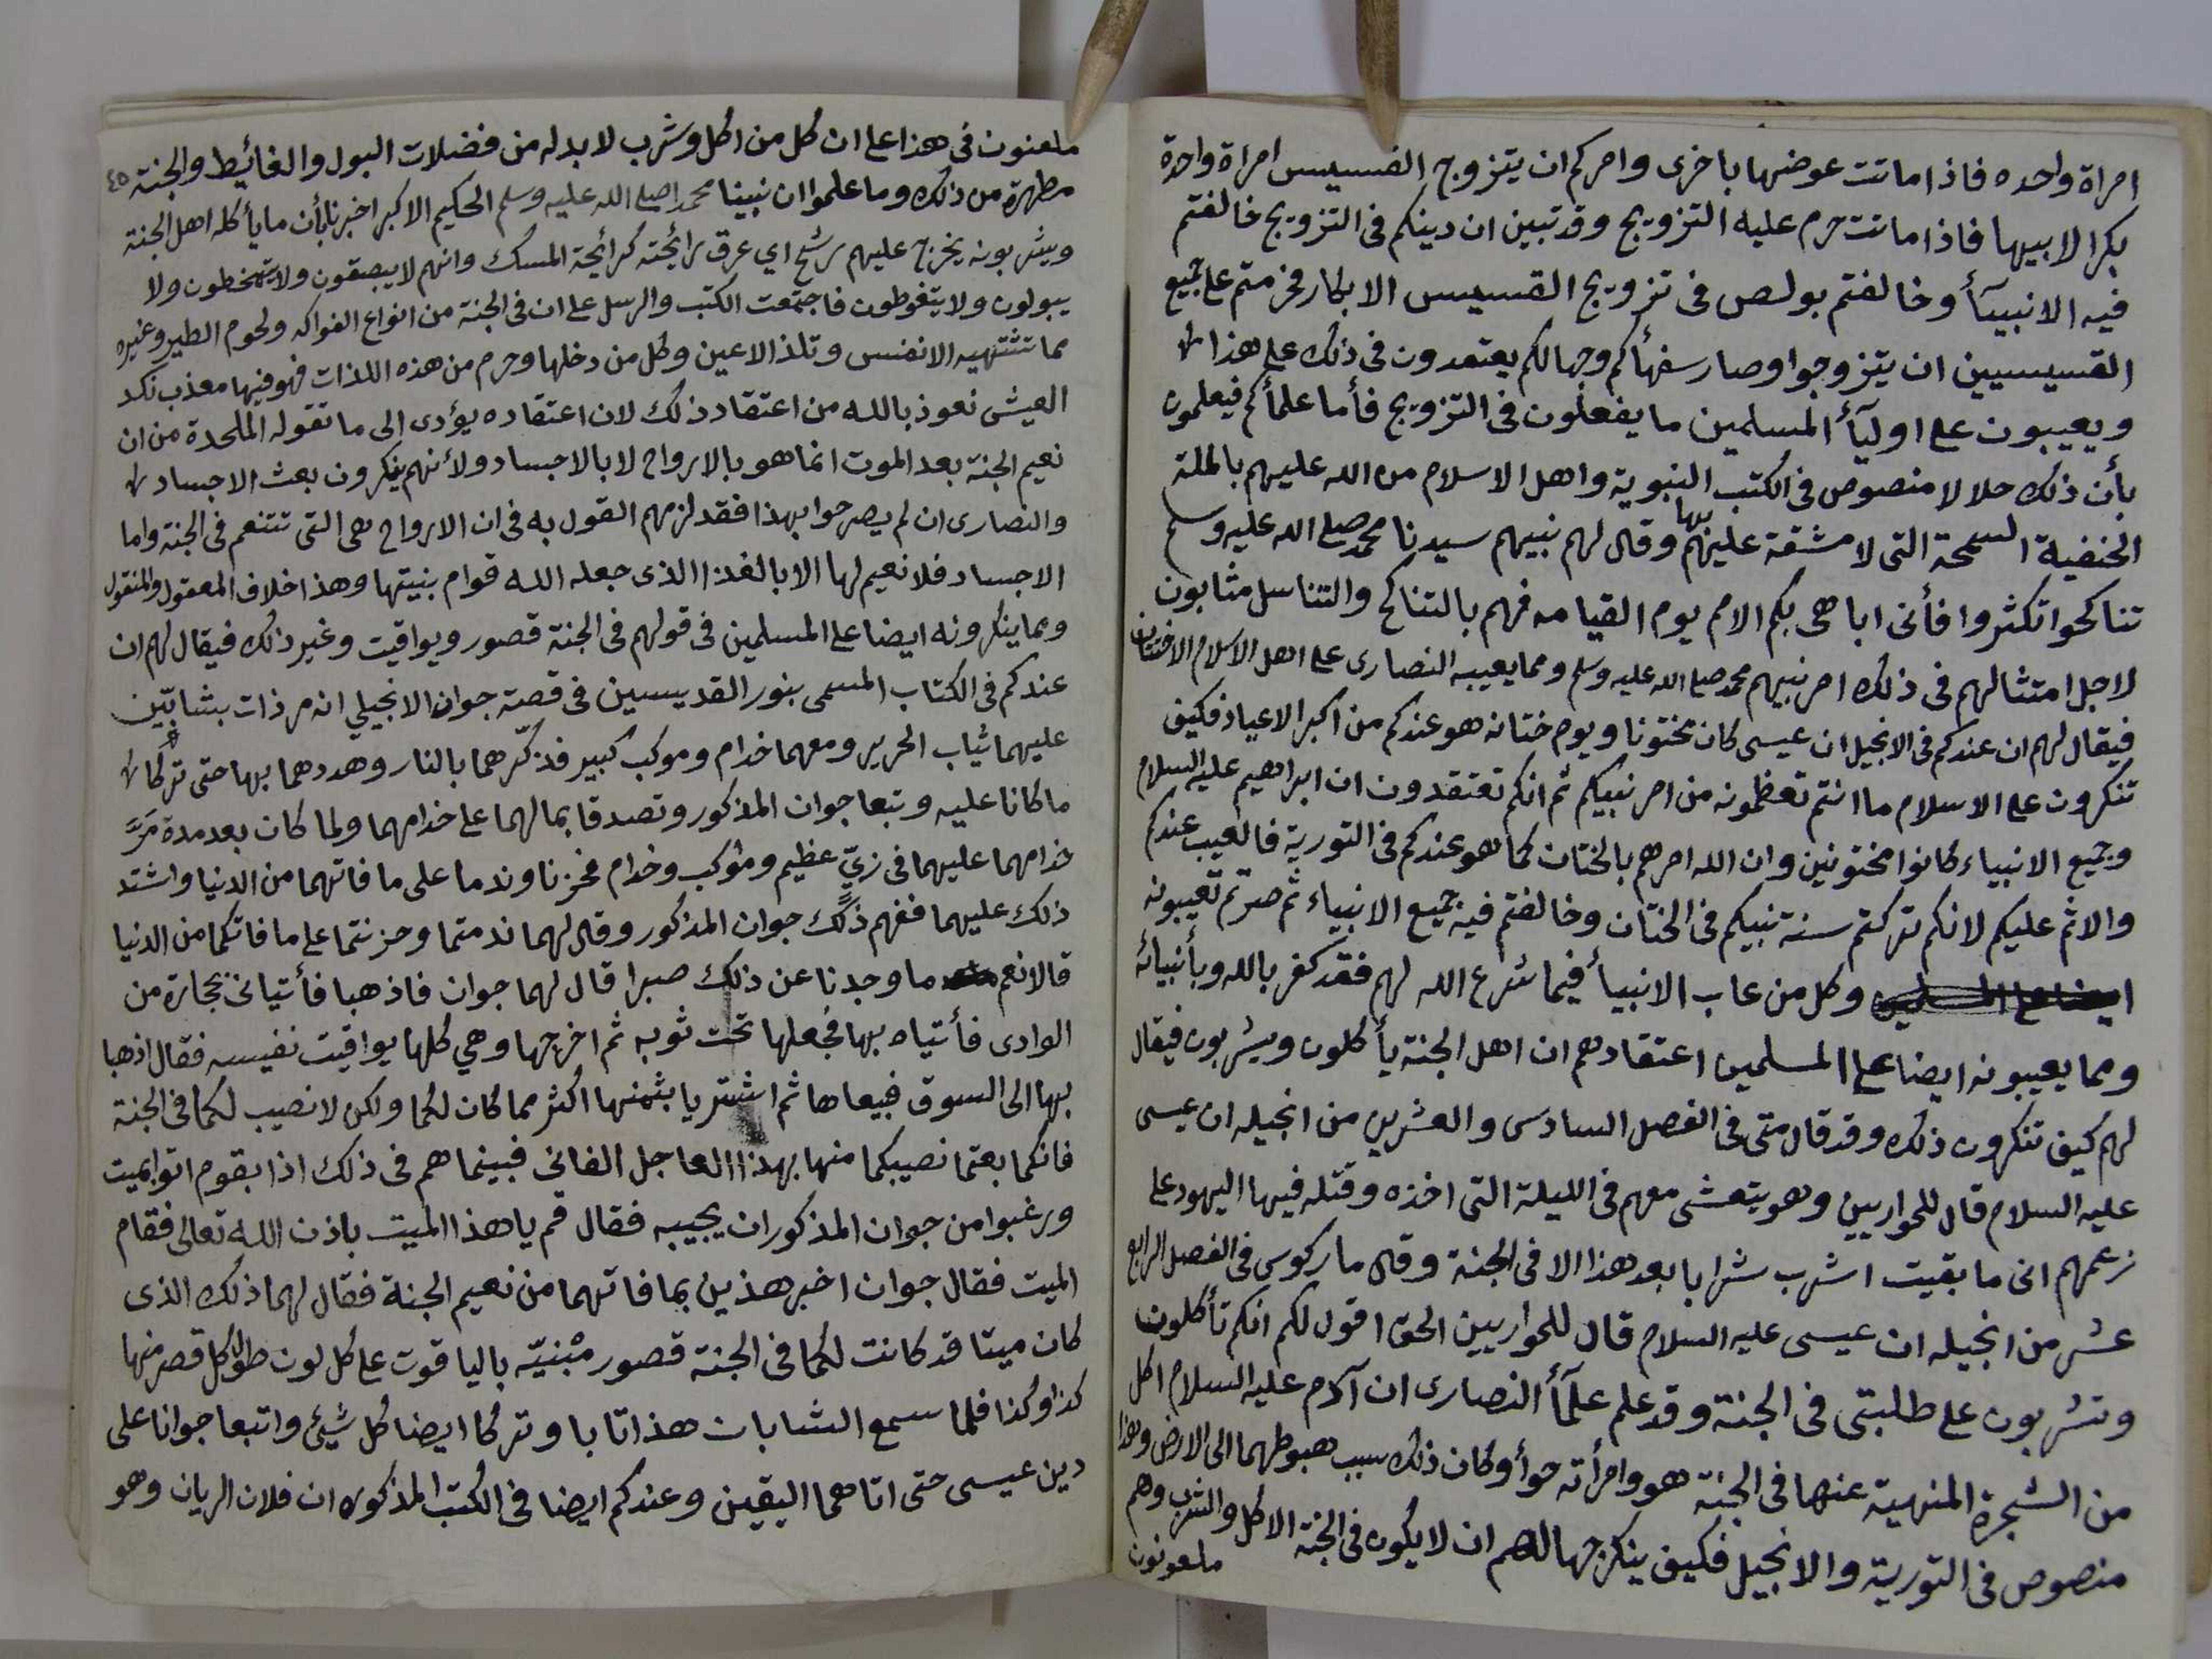 امراة واحده فاذا ماتت عوضها باخرى وامركم ان يتزوج القسيس امراة واحدة
بكرا لابيها فاذا ماتت حرم عليه التزويج وقد تبين ان دينكم فى التزويج خالفتم
فيه الانبيآأ وخالفتم بولص فى تزويج القسيس الابكار فحرمتم على جميع
القسيسين ان يتزوجوا وصار سفهأكم وجهالكم يعتمدون فى ذلك على هذا
ويعيبون على اوليآأ المسلمين ما يفعلون فى التزويج فأما علمأكم فيعلمون
بأن ذلك حلالا منصوص فى الكتب النبوية واهل الاسلام من الله عليهم بالملة
الحنفية السمحة التى لا مشقة عليهم بها وقال لهم نبيهم سيدنا محمد صلى الله عليه وسلم
تناكحوا تكثروا فأنى اباهى بكم الامم يوم القيامه فهم بالتناكح والتناسل مثابون
لاجل امتثالهم فى ذلك امر نبيهم محمد صلى الله عليه وسلم ومما يعيبه النصارى على اهل الاسلام الاختتان
فيقال لهم ان عندكم فى الانجيل ان عيسى كان مختونا ويوم ختانه هو عندكم من اكبر الاعياد فكيف
تنكرون على الاسلام ما انتم تعظمونه من امر نبيكم ثم انكم تعتقدون ان ابراهيم عليه السلام
وجميع الانبياء كانوا مختونين وان الله امرهم بالختان كما هو عندكم فى التورية فالعيب عندكم
والاثم عليكم لانكم تركتم سنة نبيكم فى الختان وخالفتم فيه جميع الانبياء ثم صرتم تعيبونه
ايضا على المسلمين وكل من عاب الانبيأ فيما شرع الله لهم فقد كفر بالله وبأنبيائه
ومما يعيبونه ايضا على المسلمين اعتقادهم ان اهل الجنة يأكلون ويشربون فيقال
لهم كيف تنكرون ذلك وقد قال متى فى الفصل السادس والعشرين من انجيله ان عيسى
عليه السلام قال للحواريين وهو يتعشى معهم فى الليلة التى اخذه وقتله فيها اليهود على
زعمهم انى ما بقيت اشرب شرابا بعد هذا الا فى الجنة وقال ماركوس فى الفصل الرابع
عشر من انجيله ان عيسى عليه السلام قال للحواريين الحق اقول لكم انكم تأكلون
وتشربون على طلبتى فى الجنة وقد علم علمآأ النصارى ان آدم عليه السلام اكل
من الشجرة المنهية عنها فى الجنة هو وامرأته حوأ وكان ذلك سبب هبوطهما الى الارض وهذا
منصوص فى التورية والانجيل فكيف ينكر جهالهم ان لا يكون فى الجنة الاكل والشرب وهم
ملعونون
ملعنون فى هذا على ان كل من اكل وشرب لا بد له من فضلات البول والغائيط والجنة ٤٥
مطهرة من ذلك وما علموا ان نبينا محمدا صلى الله عليه وسلم الحكيم الاكبر اخبرنا بأن ما يأكله اهل الجنة
ويشربونه يخرج عليهم رشح اي عرق رائحته كرائحة المسك وانهم لا يبصقون ولا يتمخطون ولا
يبولون ولا يتغوطون فاجتمعت الكتب والرسل على ان فى الجنة من انواع الفواكه ولحوم الطير وغيره
مما تشتهيه الانفس وتلذ الاعين وكل من دخلها وحرم من هذه اللذات فهو فيها معذب نكد
العيش نعوذ بالله من اعتقاد ذلك لان اعتقاده يؤدى الى ما تقوله الملحدة من ان
نعيم الجنة بعد الموت انما هو بالارواح لا بالاجساد ولأنهم ينكرون بعث الاجساد
والنصارى ان لم يصرحوا بهذا فقد لزمهم القول به فى ان الارواح هى التى تتنعم فى الجنة واما
الاجساد فلا نعيم لها الا بالغذا الذى جعله الله قوام بنيتها وهذا خلاف المعقول والمنقول
ومما ينكرونه ايضا على المسلمين فى قولهم فى الجنة قصور ويواقيت وغير ذلك فيقال لهم ان
عندكم فى الكتاب المسمى بنور القديسين فى قصة جوان الانجيلي انه مر ذات بشابّين
عليهما ثياب الحرير ومعهما خدام وموكب كبير فذكّرهما بالنار وهددهما بها حتى تركا
ما كانا عليه وتبعا جوان المذكور وتصدقا بمالهما على خدامهما ولما كان بعد مدة مَرَّ
خدامهما عليهما فى زيٍّ عظيم وموكب وخدام فحزنا وندما على ما فاتهما من الدنيا واشتد
ذلك عليهما ففهم ذلك جوان المذكور وقال لهما ندمتما وحزنتما على ما فاتكما من الدنيا
قالا نعم ما وجدنا عن ذلك صبرا قال لهما جوان فاذهبا فأتيانى بحجارة من
الوادى فأتياه بها فجعلها تحت ثوبه ثم اخرجها وهي كلها يواقيت نفيسه فقال اذهبا
بها الى السوق فبيعاها ثم اشتريا بثمنها اكثر مما كان لكما ولكن لا نصيب لكما فى الجنة
فانكما بعتما نصيبكما منها بهذا العاجل الفانى فبينما هم فى ذلك اذا بقوم اتوا بميت
ورغبوا من جوان المذكور ان يحييه فقال قم يا هذا الميت باذن الله تعالى فقام
الميت فقال جوان اخبر هذين بما فاتهما من نعيم الجنة فقال لهما ذلك الذى
كان ميتا قد كانت لكما فى الجنة قصور مبنيّه باليا قوت على كل لون طول كل قصر منها
كذا وكذا فلما سمع الشابان هذا تابا وتركا ايضا كل شيئ واتبعا جوانا على
دين عيسى حتى اتاهما اليقين وعندكم ايضا فى الكتب المذكوره ان فلان الريان وهو